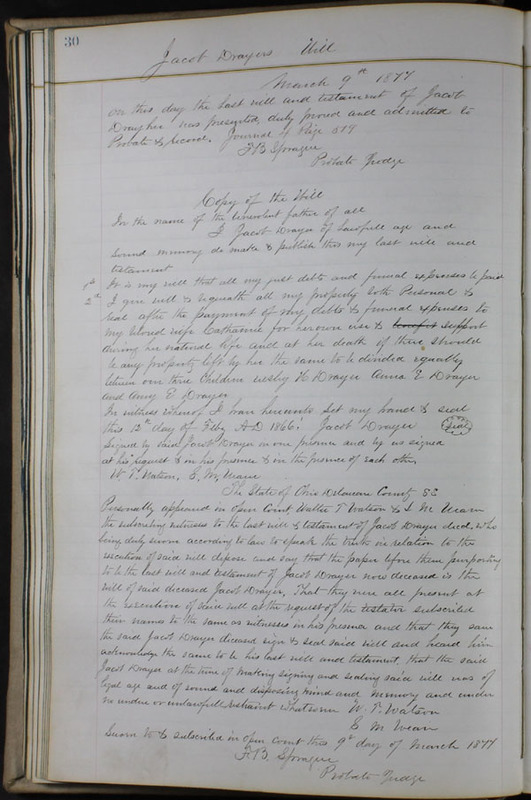 30
Jacob Drayers Will
March 9th 1877
on this day the last will and testament of Jacob
Drayher was presented, duly proved and admitted to
Probate & Record. Journal 4 Page 519
F. B. Sprague
Probate Judge
Copy of the Will
In the name of the benevolent father of all
I Jacob Drayer of lawfull age and
sound memory do make & publish this my last will and
testament
1st It is my will that all my just debts and funeral expenses be paid
2nd I give will & bequeath all my property both Personal &
real after the payment of my debts & funeral expenses to
my beloved wife Catharine for her own use & benefit support
during her natural life and at her death if there should
be any property left by her the same to be divided equally
between our three children Wesley H Drayer Anna E Drayer
and Amy E Drayer
In witness whereof I have hereunto set my hand & seal
this 12th day of Feby AD 1866. Jacob Drayer Seal
Signed by said Jacob Drayer in our presence and by us signed
at his request & in his presence & in the presence of each other
W. T. Watson, S. M. Wean
The State of Ohio Delaware County SS
Personally appeared in open Court, Walter T Watson & S M Wean
the subscribing witnesses to the last will & testament of Jacob Drayer decd. who
being duly sworn according to law to speak the truth in relation to the
execution of said will depose and say that the paper before them purporting
to be the last will and testament of Jacob Drayer now deceased is the
will of said deceased Jacob Drayer, That they were all present at
the execution of said will at the request of the testator subscribed
their names to the same as witnesses in his presence and that they saw
the said Jacob Drayer deceased sign & seal said will and heard him
acknowledge the same to be his last will and testament, that the said
Jacob Drayer at the time of making signing and sealing said will was of
legal age and of sound and disposing mind and memory and under
no undue or unlawfull restraint whatsoever W. T. Watson
S M Wean
Sworn to & subscribed in open court this 9th day of March 1877
F. B. Sprague
Probate Judge